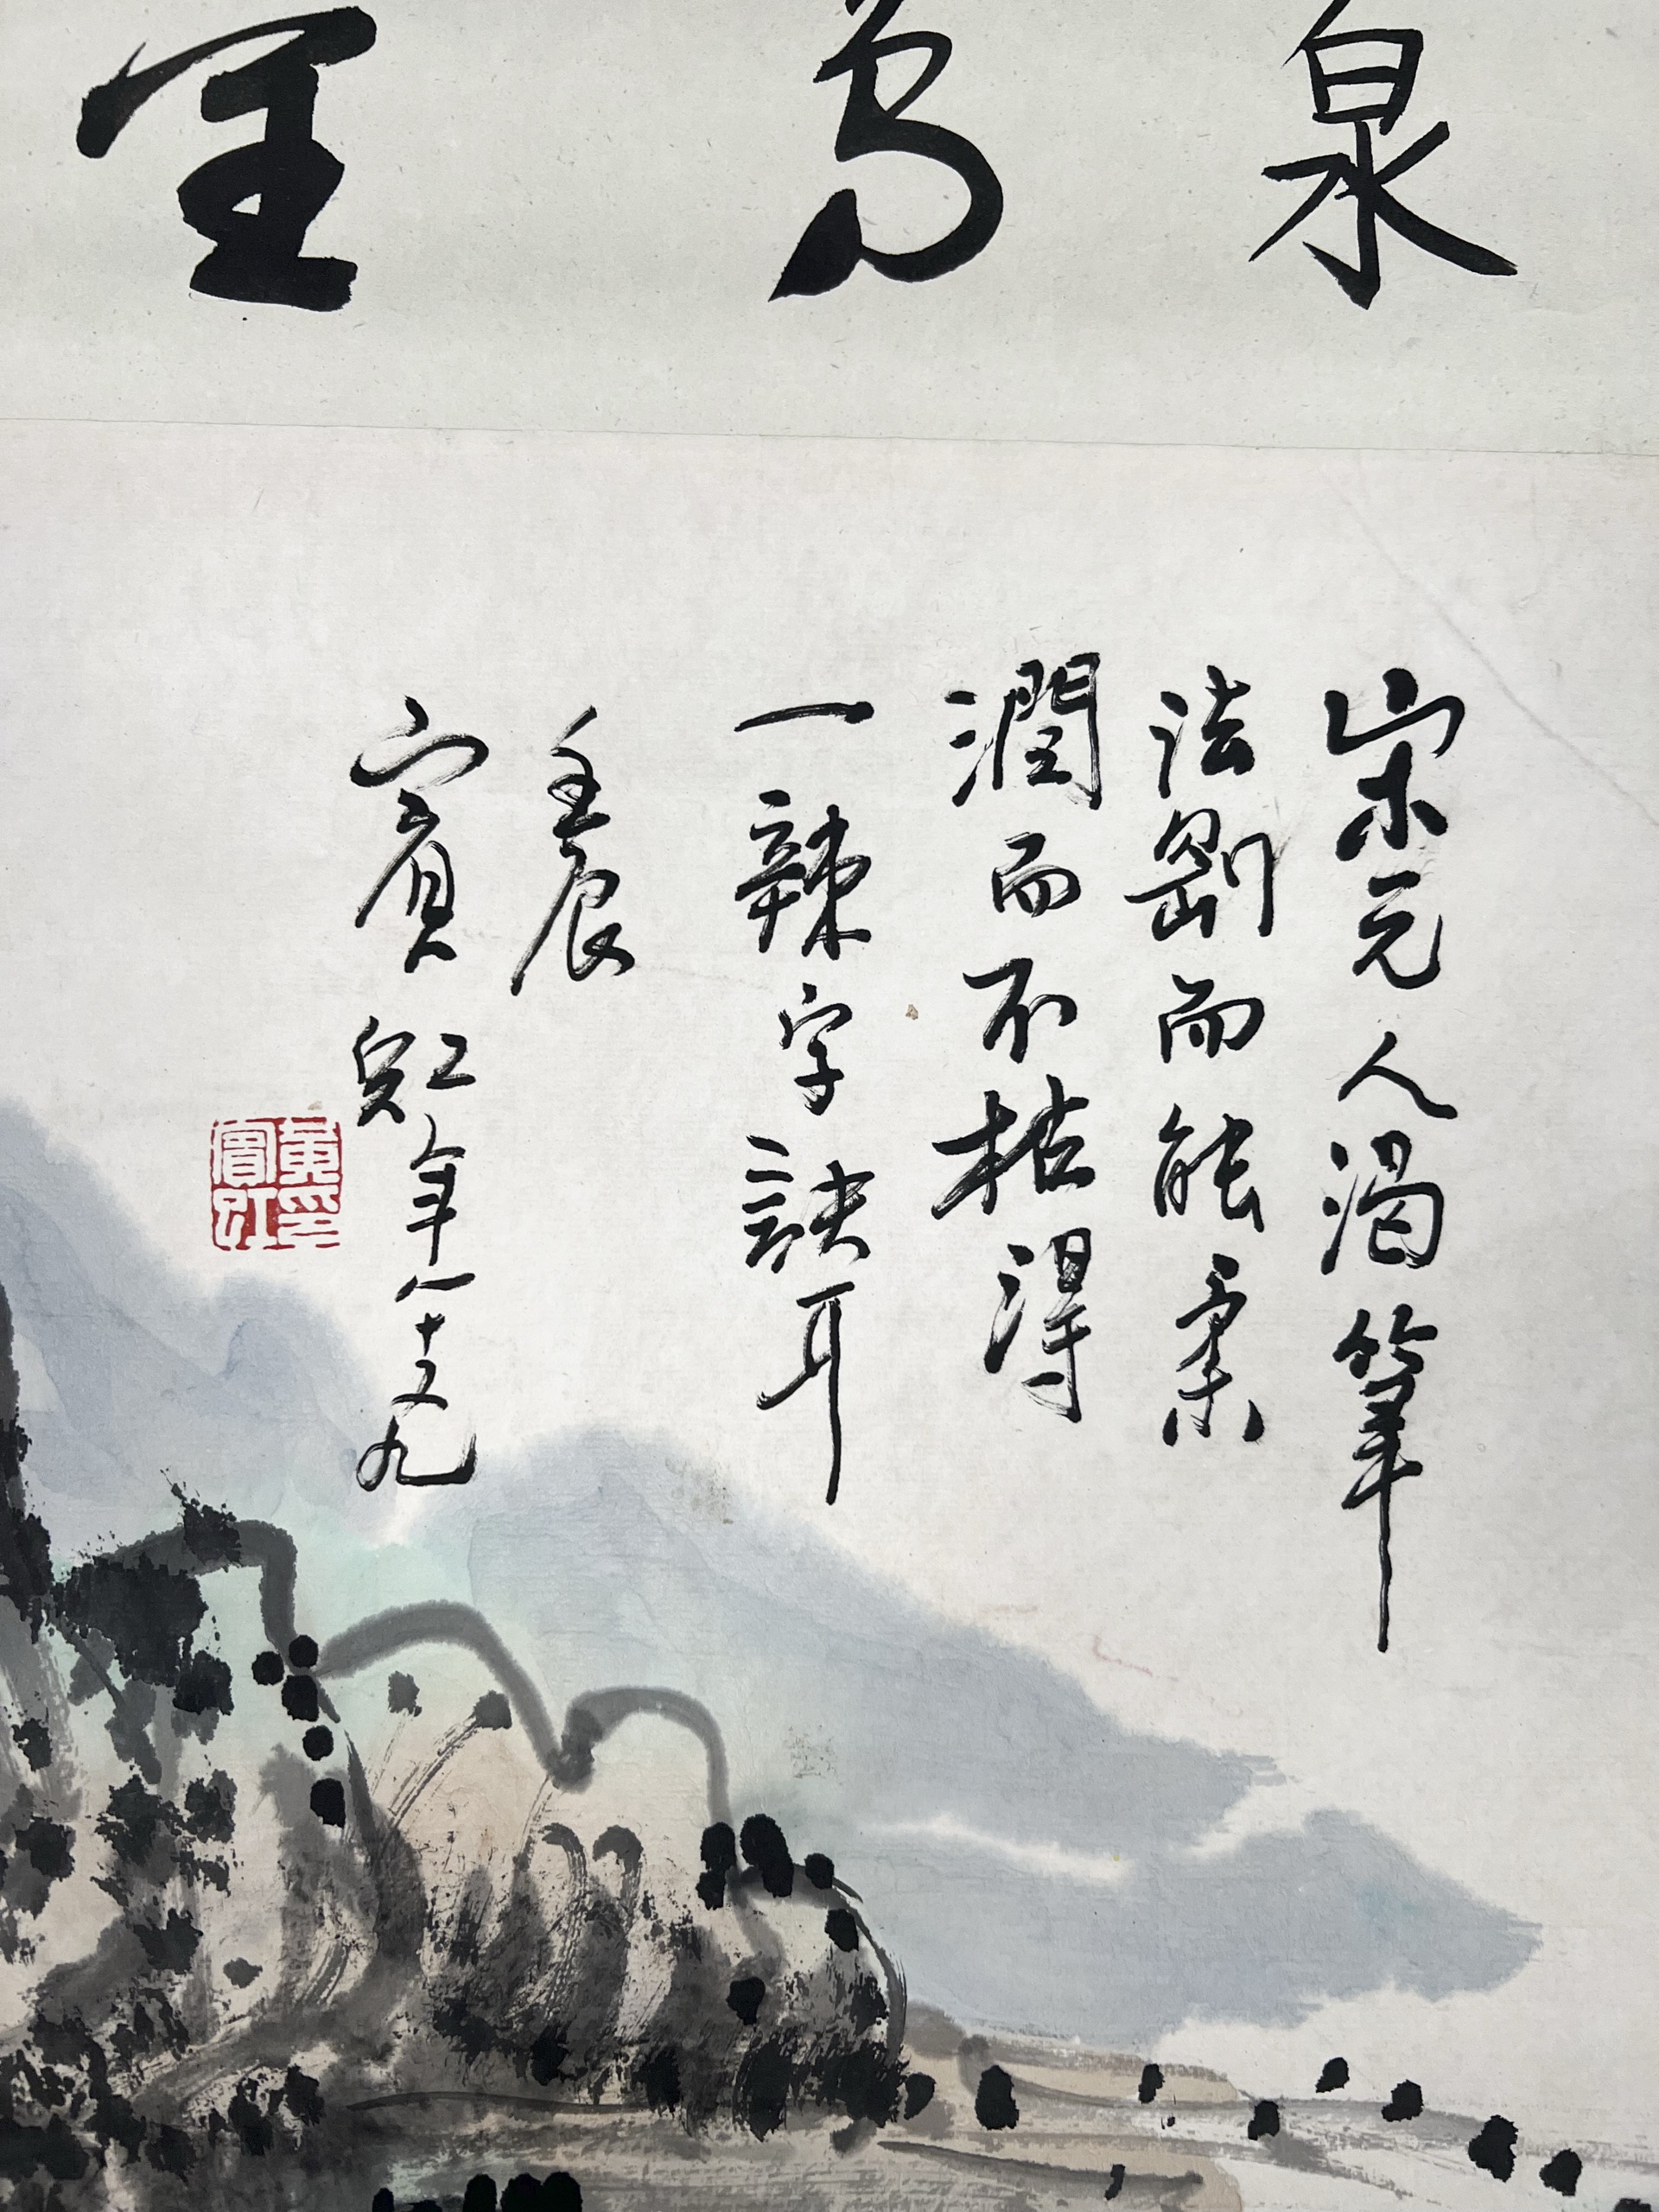 泉
宋元人渴筆
法剛而能柔
潤而不枯得
一辣字訣耳
壬辰
賓虹年八十又九
黃賓虹印